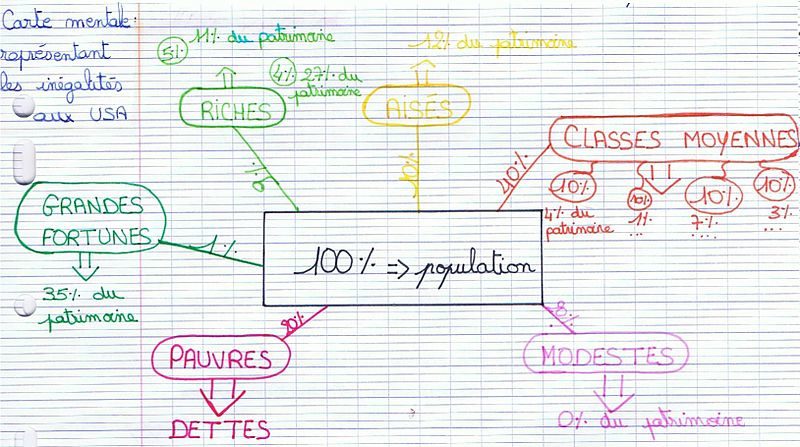 Carte mentale:
représentant
les inégalités
aux USA
11% du patrimoine
5%
4% 27% du
patrimoine
RICHES
9%
12% du patrimoine
AISÉS
10%
CLASSES MOYENNES
40%
10% 10% 10% 10%
4% du
patrimoine
1%
...
7%
....
3%
...
GRANDES
FORTUNES
1%
35% du
patrimoine
100% => population
PAUVRES
DETTES
MODESTES
0% du patrimoine